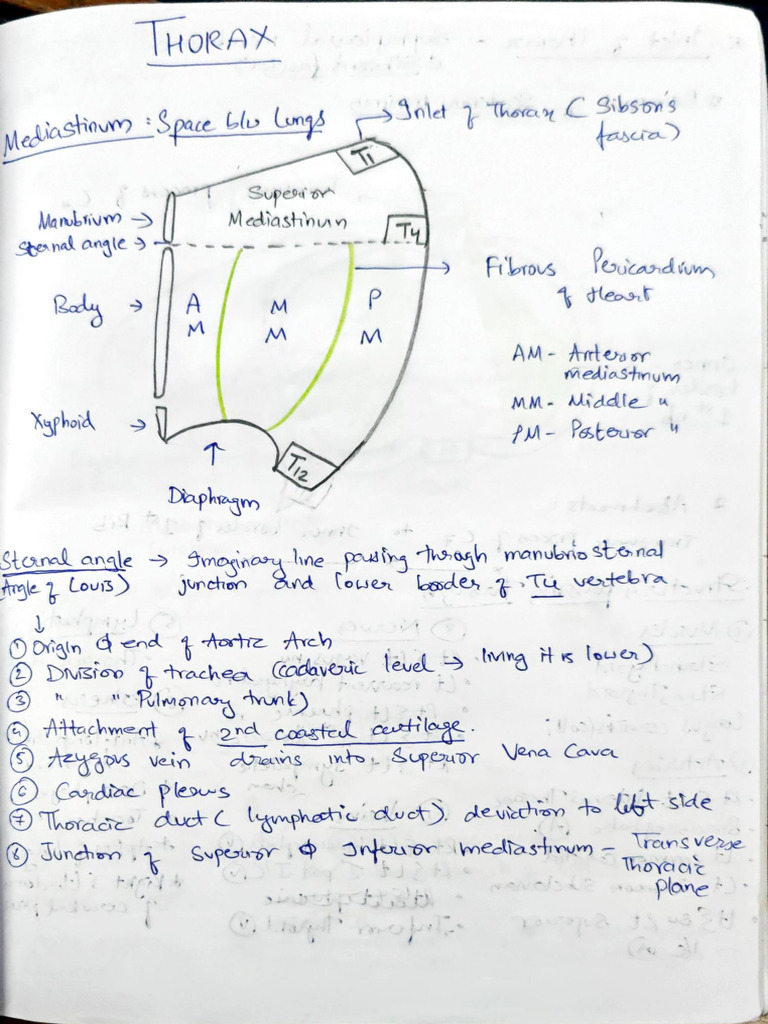 THORAX
Mediastinum : Space b/w Lungs
Inlet of Thorax ( Sibson's
fascia)
T1
Superior
Mediastinum
Manubrium
Sternal angle
T4
Fibrous Pericardium
of Heart
Body
A
M
M
M
P
M
AM - Anterior
mediastinum
MM - Middle "
PM - Posterior "
Xyphoid
T12
Diaphragm
Sternal angle → Imaginary line passing through manubriosternal
Angle of Louis) junction and lower border of T4 vertebra
↓
① Origin & end of Aortic Arch
② Division of trachea (cadaveric level → living it is lower)
③ " " Pulmonary trunk)
④ Attachment of 2nd coastal cartilage.
⑤ Azygous vein drains into Superior Vena Cava
⑥ Cardiac plexus
⑦ Thoracic duct ( lymphatic duct) deviation to left side
⑧ Junction of Superior & Inferior mediastinum - Transverse
Thoracic
plane